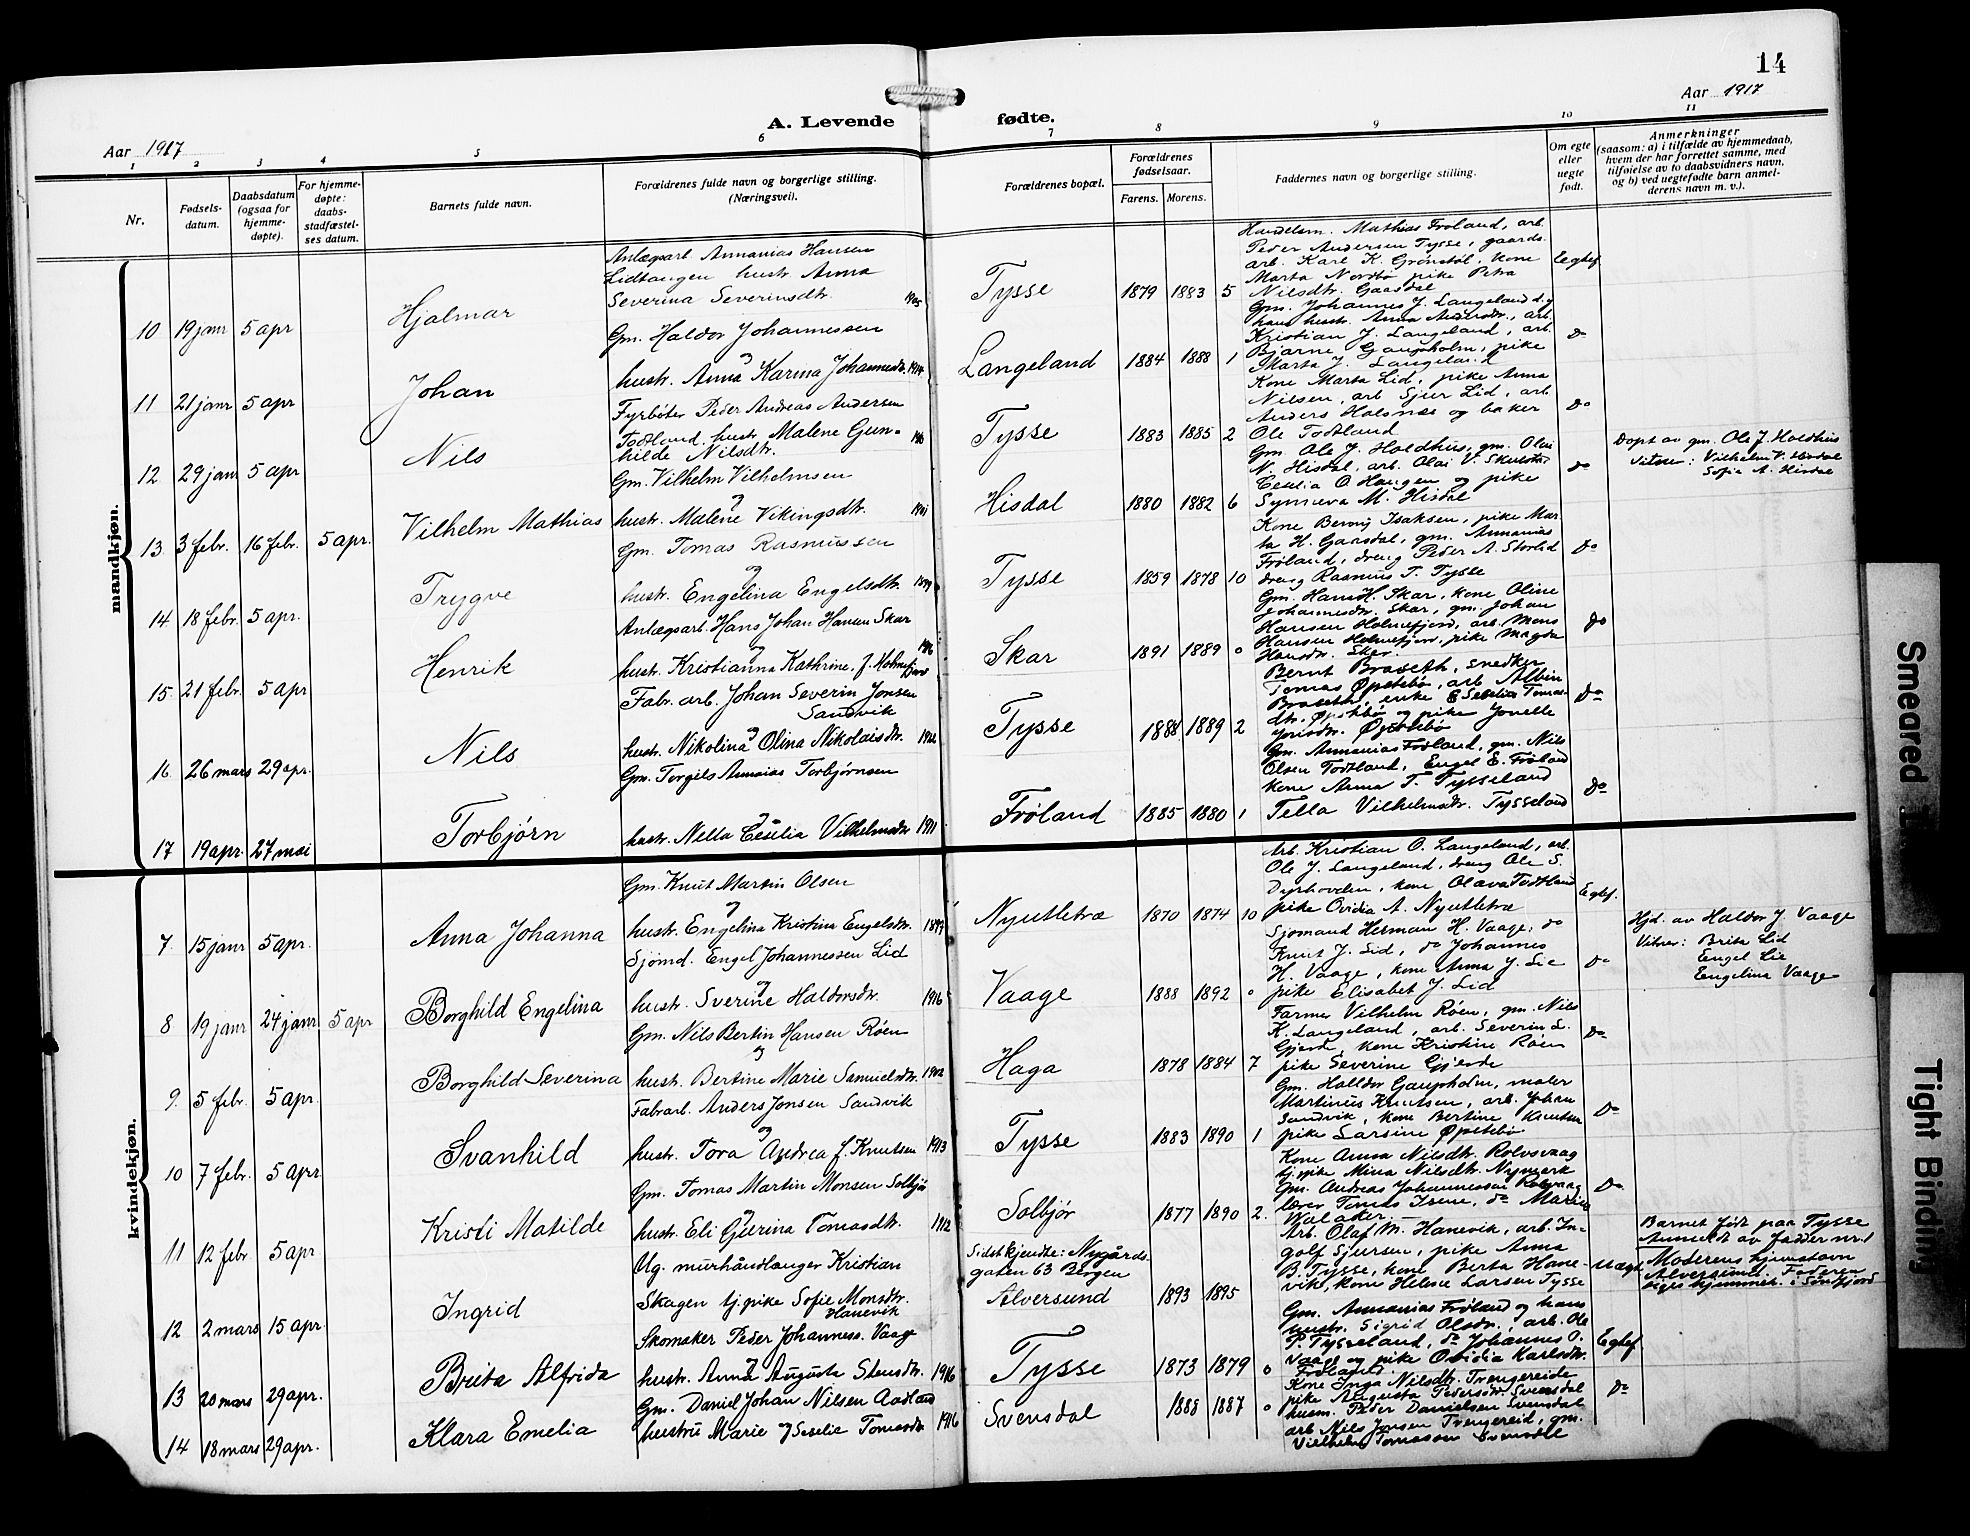 14
Aar 1917
A. Levende fødte.
Aar 1917
1 2 3 4 5 6 7 8 9 10 11
Nr.
Fødsels-
datum.
Daabsdatum
(ogsaa for
hjemme-
døpte).
For hjemme-
døpte:
daabs-
stadfæstel-
ses datum.
Barnets fulde navn.
Forældrenes fulde navn og borgerlige stilling.
(Næringsvei).
Forældrenes bopæl.
Forældrenes
fødselsaar.
Farens. Morens.
Faddernes navn og borgerlige stilling.
Om egte
eller
uegte
født.
Anmerkninger
(saasom: a) i tilfælde av hjemmedaab,
hvem der har forrettet samme, med
tilføielse av to daabsvidners navn,
og b) ved uegtefødte barn anmel-
derens navn m. v.).
mandkjøn.
10 19 janr 5 apr Hjalmar
Anlægsarb. Annanias Hansen
Lidtangen hustr. Anna
Severina Severinsdtr. 1905
Tysse 1879 1883 5
Handelsm. Mathias Frøland, arb.
Peder Andersen Tysse, gaards.
arb. Karl K. Grønstøl, kone
Marta Nordbø pike Petra
Nilsdtr. Gaasdal
Egtef.
11 21 janr 5 apr Johan
Gm. Haldor Johannessen
og
hustr. Anna Karina Johannesdtr. 1914
Langeland 1884 1888 1
Gm. Johannes J. Langeland og
hans hustr. Anna Andersdtr., arb.
Kristian J. Langeland, arb.
Bjarne Gaupholm, pike
Marta J. Langeland
do
12 29 janr 5 apr Nils
Fyrbøter Peder Andreas Andersen
Todtland hustr. Malene Gun-
hilde Nilsdtr.
Tysse 1883 1885 2
Kone Marta Lid, pike Anna
Nilsen, arb Sjur Lid, arb
Anders Halsnæs og baker
Ole Todtland
do
13 3 febr. 16 febr. 5 apr. Vilhelm Mathias
Gm. Vilhelm Vilhelmsen
og
hustr. Malene Vikingsdtr. 1901
Hisdal 1880 1882 6
Gm. Ole J. Holdhus, gm. Olai
N. Hisdal, arb. Olai V. Skulstad
Cecilia O Haugen og pike
Synneva M. Hisdal
do
Døpt av gm. Ole J. Holdhus
Vitner: Vilhelm V. Hisdal
Sofie A. Hisdal
14 18 febr. 5 apr. Trygve
Gm. Tomas Rasmussen
og
hustr. Engelina Engelsdtr. 1899
Tysse 1859 1878 10
Kone Berniz Isaksen, pike Mar
ta H. Gaasdal, gm. Annanias
Frøland, dreng Peder A. Storlid
dreng Rasmus T. Tysse
do
15. 21 febr. 5 apr Henrik
Anlægsarb. Hans Johan Hansen Skar
og 1916
hustr. Kristianna Kathrine f. Holmefjord
Skar 1891 1889 0
Gm. Hans H. Skar, kone Oline
Johannesdtr. Skar, gm. Johan
Hansen Holmefjord, arb. Mons
Hansen Holmefjord, pike Magda
Hansdtr. Skar.
do
16. 26 mars 29 apr. Nils
Fabr. arb. Johan Severin Jonsen
Sandvik
og
hustr. Nikolina Olina Nikolaisdtr.
Tysse 1888 1889 2
Bernt Braseth, snedker
Tomas Øpstebø, arb. Albin
Braseth, enke Seselia Tomas-
dtr. Øpstebø og pike Jonette
Jonsdtr. Øpstebø
do
17 19 apr. 27 mai Torbjørn
Gm. Torgils Annaias Torbjørnsen
og
hustr. Nella Cesilia Vilhelmsdtr 1911
Frøland 1885 1880 1
Gm. Annanias Frøland, gm. Nils
Olsen Todtland, Engel E. Frøland
kone Anna T. Tysseland
Tella Vilhelmsdtr. Tysseland
do
kvindekjøn.
7. 15 janr 5 apr. Anna Johanna
Gm. Knut Martin Olsen
og
hustr. Engelina Kristina Engelsdtr. 1897
Nyutletræ 1870 1874 10
Arb. Kristian O. Langeland, arb.
Ole J. Langeland, dreng Ole S.
Dyrhovden, kone Olava Todtland
pike Ovidia A. Nyutletræ
Egtef.
8 19 janr 24 janr 5 apr Borghild Engelina
Sjømd. Engel Johannessen Lid
og
hustr. Sverine Haldorsdtr. 1916
Vaage 1888 1892 0
Sjømand Herman H. Vaage, do
Knut J. Lid, do Johannes
H. Vaage, kone Anna J. Lie
pike Elisabet J. Lid
do
Hjd. av Haldor J. Vaage
Vitner: Brita Lid
Engel Lie
Engelina Vaage
9. 5 febr. 5 apr. Borghild Severina
Gm. Nils Bertin Hansen Røen
og
hustr. Bertine Marie Samuelsdtr. 1902
Haga 1878 1884 7
Farmer Vilhelm Røen, gm. Nils
K. Langeland, arb. Severin S.
Gjerde, kone Kristine Røen
pike Severine Gjerde
do
10 7 febr. 5 apr Svanhild
Fabrarb. Anders Jonsen Sandvik
og
hustr. Tora Andrea f. Knutsen 1913
Tysse 1883 1890 1
Gm. Halldor Gaupholm, maler
Martinius Knutsen, arb. Johan
Sandvik, kone Bertine Knutsen
pike Larsine Øpstebø
do
11 12 febr 5 apr Kristi Matilde
Gm. Tomas Martin Monsen Solbjør
og
hustr. Eli Gjurina Tomasdtr. 1912
Solbjør 1877 1890 2.
Kone Anna Nilsdtr. Rolvsvaag
tj. pike Mina Nilsdtr. Nymark
Gm. Andreas Johannessen Rolvsvaag
lærer Tomas Isene, do Marius
Walaker
do
12 2 mars 15 apr. Ingrid
Ug. murhåndlanger Kristian
Skagen tj. pike Sofie Monsdtr.
Hanevik
Sidst kjendte: Nygårds
gaten 63 Bergen
Alversund 1893 1895
Arb. Olaf M. Hanevik, arb. In-
golf Sjursen, pike Anna
B. Tysse, kone Berta Hane-
vik, kone Helene Larsen Tysse
Uægte
Barnet født paa Tysse
Anmeldt av fadder nr. 1
Moderens hjemstavn
Alversund. Faderen
siges hjemmeh. i Søndfjord
13 20 mars 29 apr. Brita Alfrida
Skomaker Peder Johanness. Vaage
og
hustr. Anna Augusta Stensdtr. 1916
Tysse 1873 1879 0
Gm. Annanias Frøland og hans
hustr. Sigrid Olsdtr., arb. Ole
P. Tysseland, do Johannes O.
Vaage og pike Ovidia Karlsdtr.
Frøland
Egtef
14 18 mars 29 apr. Klara Emelia
Gm. Daniel Johan Nilsen Aadland
og
hustru Marie Seselie Tomasdtr 1916
Svensdal 1888 1887 0
Kone Inga Nilsdtr. Trengereide
pike Augusta Pedersdtr. Svensdal
husm. Peder Danielsen Svensdal
arb Nils Jonsen Trengereid, gm.
Vielhelm Tomassen Svensdal
do
Smeared
Tight Binding